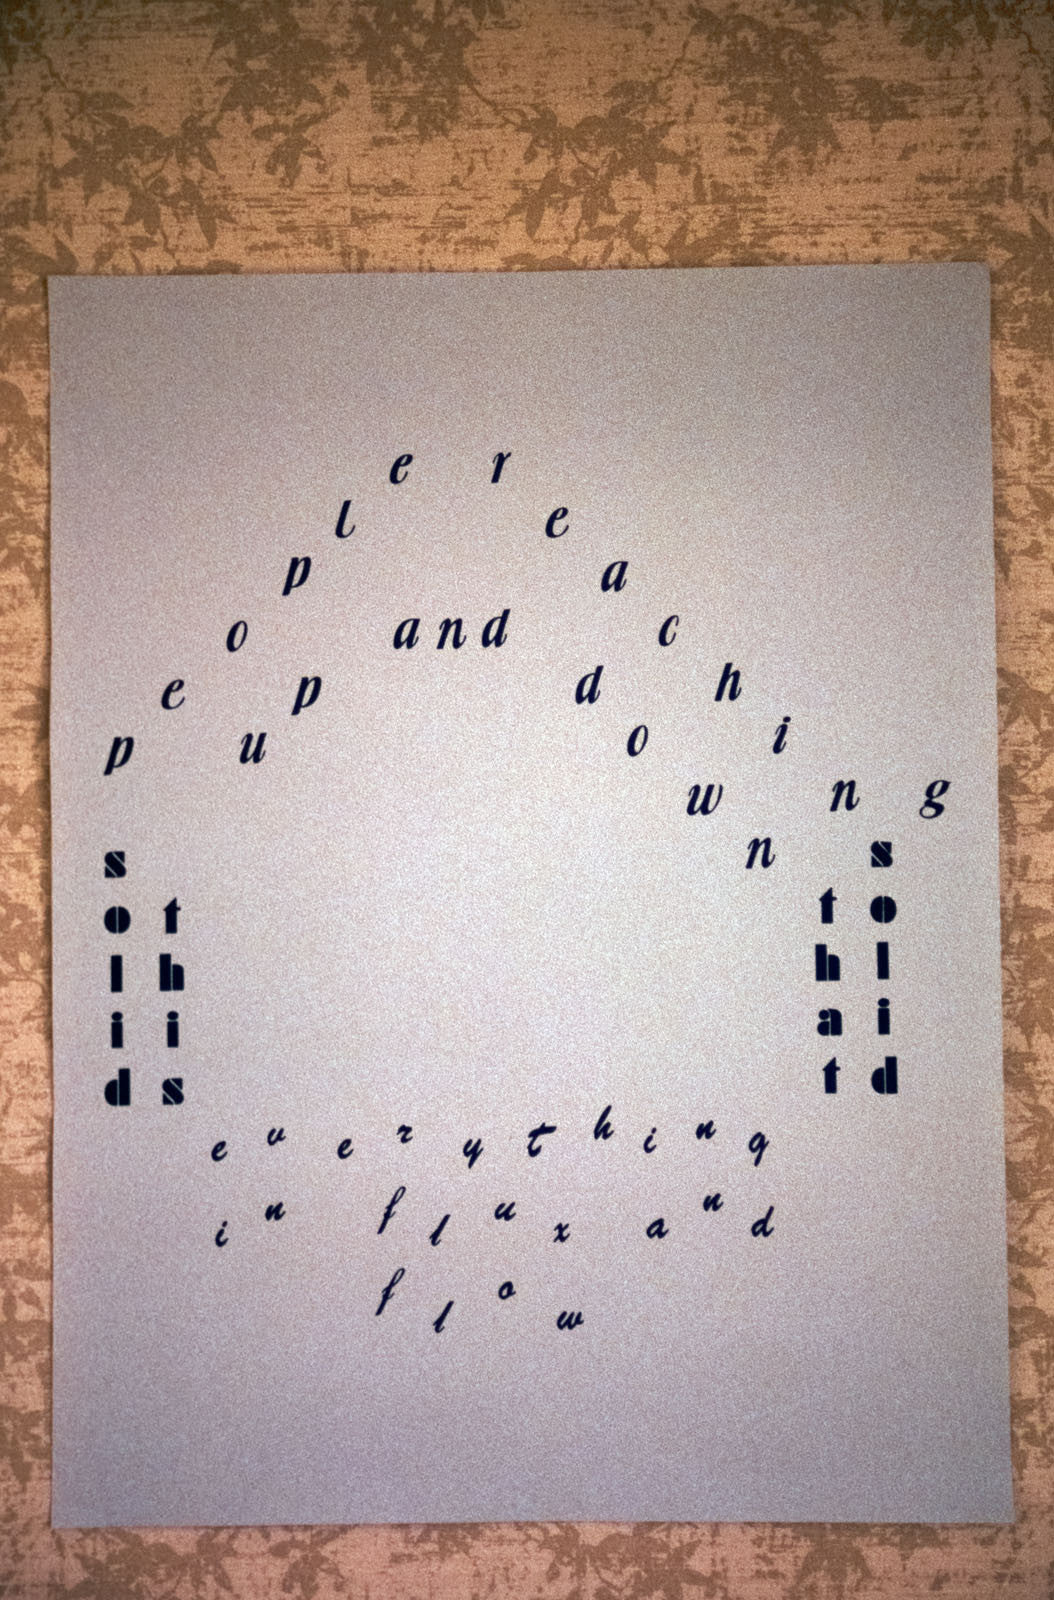 people reaching
up and down
solid this
that solid
everything
in flux and
flow